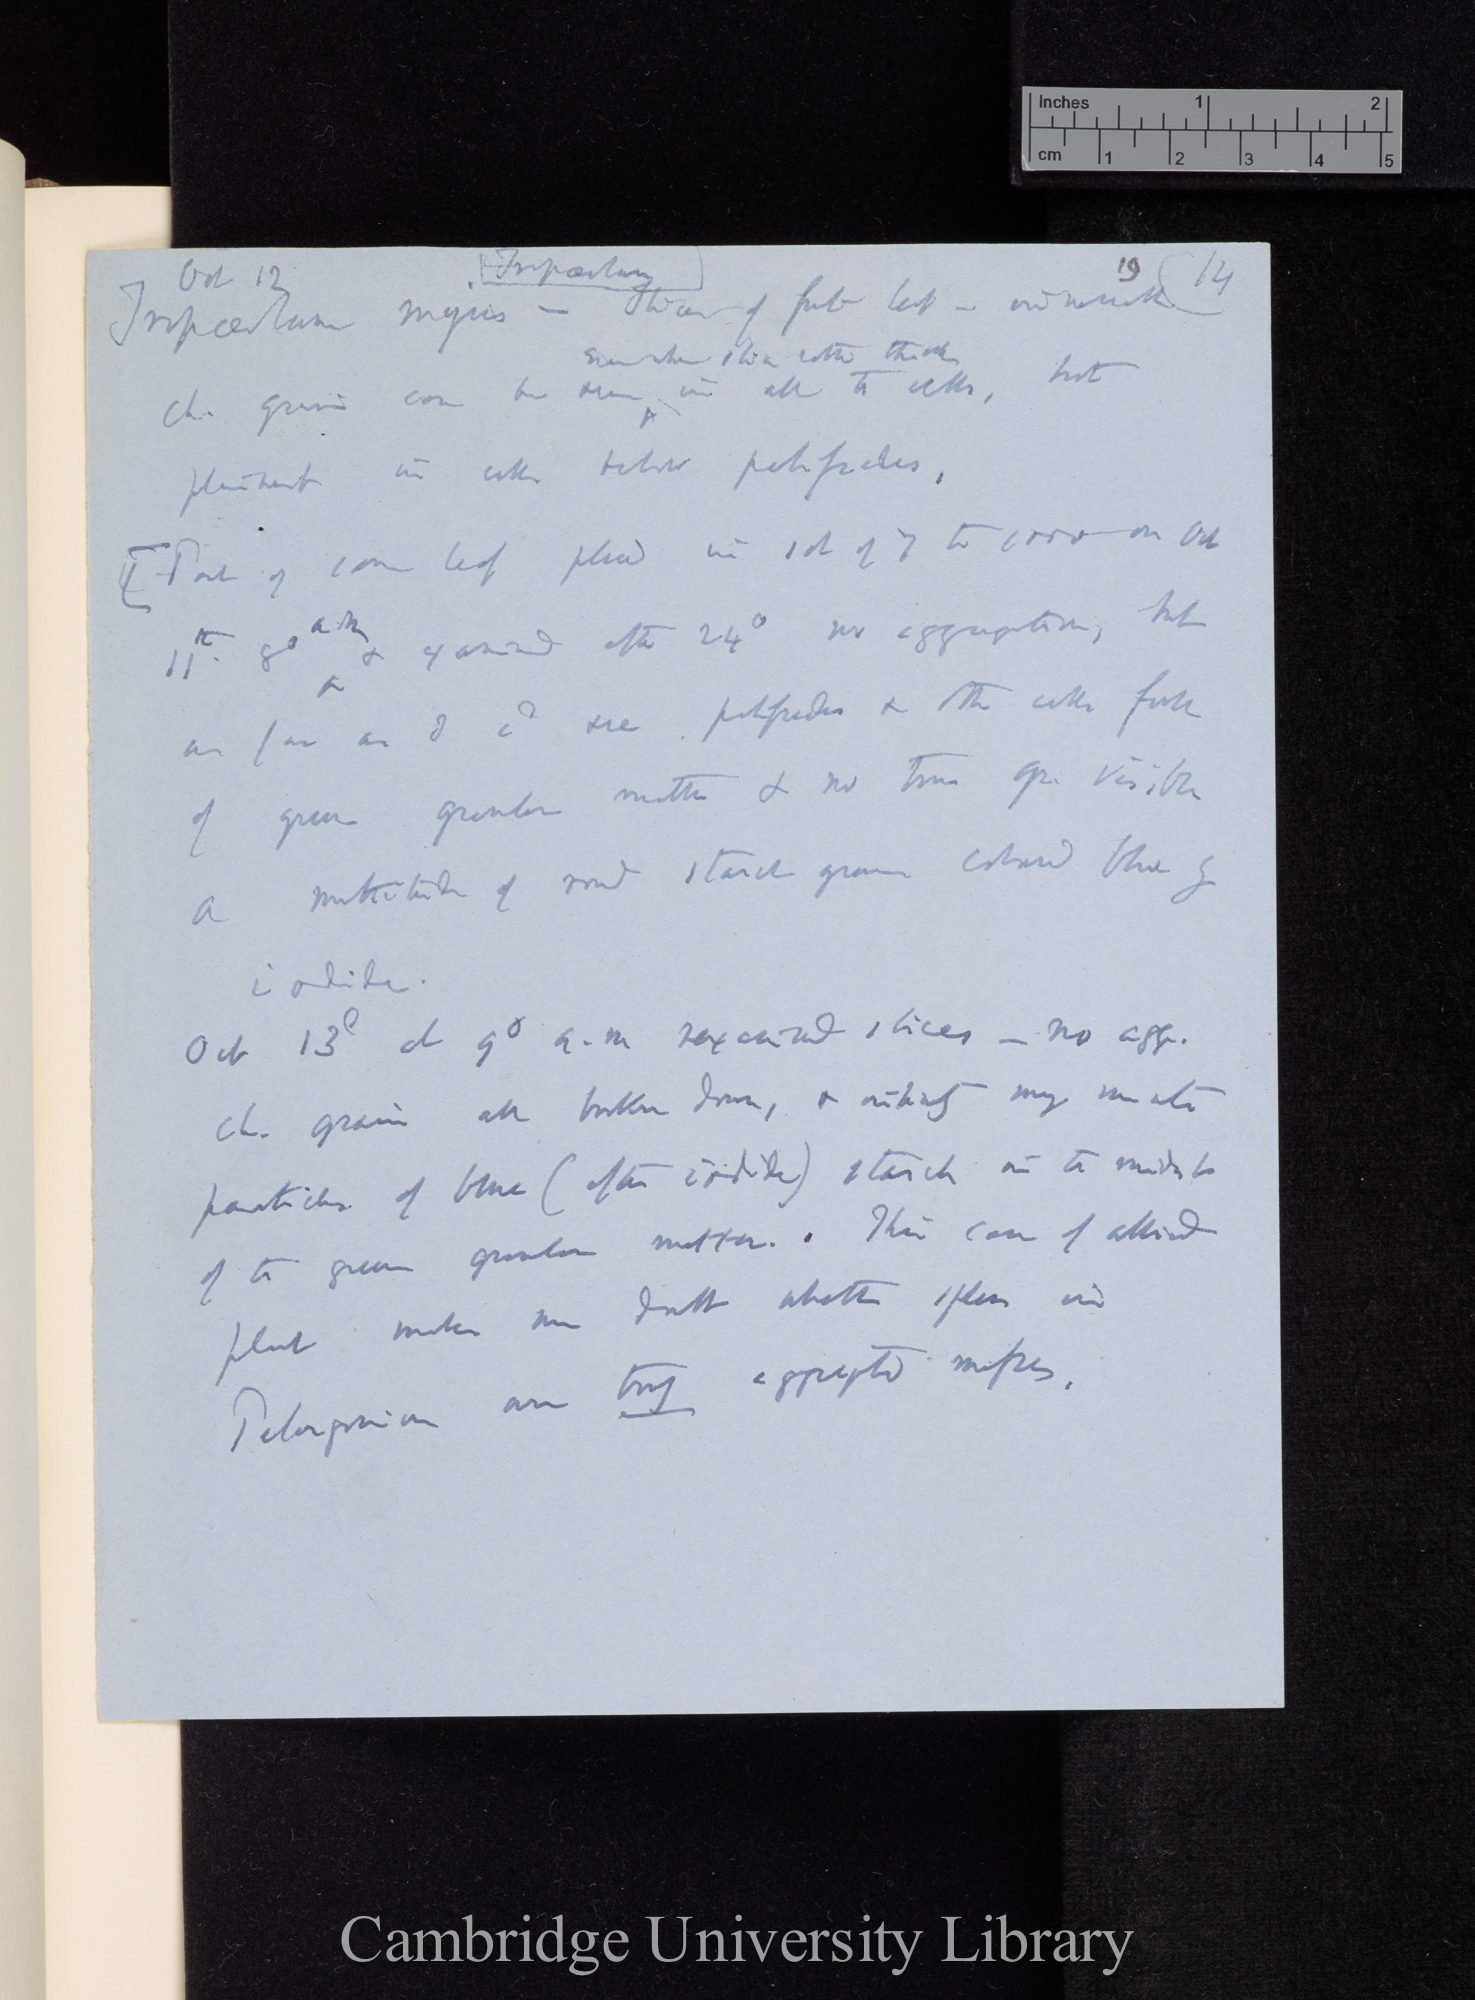 Inches 1 2
cm 1 2 3 4 5
Oct 12 Tropæolum 19 (14
Tropæolum majus — slices of fresh leaf — in water
even when slice rather thick
ch. grains can be seen in all the cells, but
plainest in cells below palisades.
[Part of same leaf placed in sol of 7 to 1000 on Oct
11th. 8° a.m & examined after 24° no aggregation, but
as far as I cd see palisades & other cells full
of green granular matter & no true gr. visible
a multitude of round starch grains coloured blue by
iodide.
Oct 13th at 9° a.m reexamined slices — no agg.
ch. grains all broken down, & many minute
particles of blue (after iodide) starch in the midst
of the green granular matter. This case of allied
plant makes me doubt whether spheres in
Pelargonium are truly aggregated masses.
Cambridge University Library